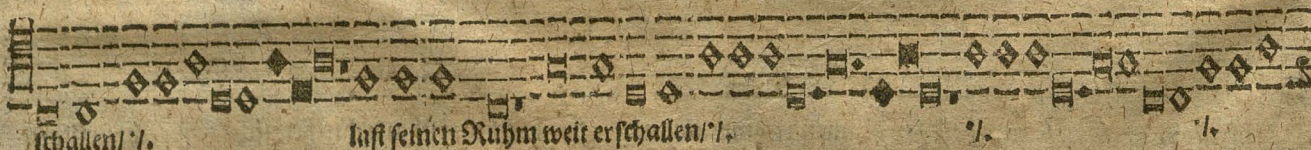 schallen/ ·/. last seinen Ruhm weit erschallen/ ·/. ·/. ·/.